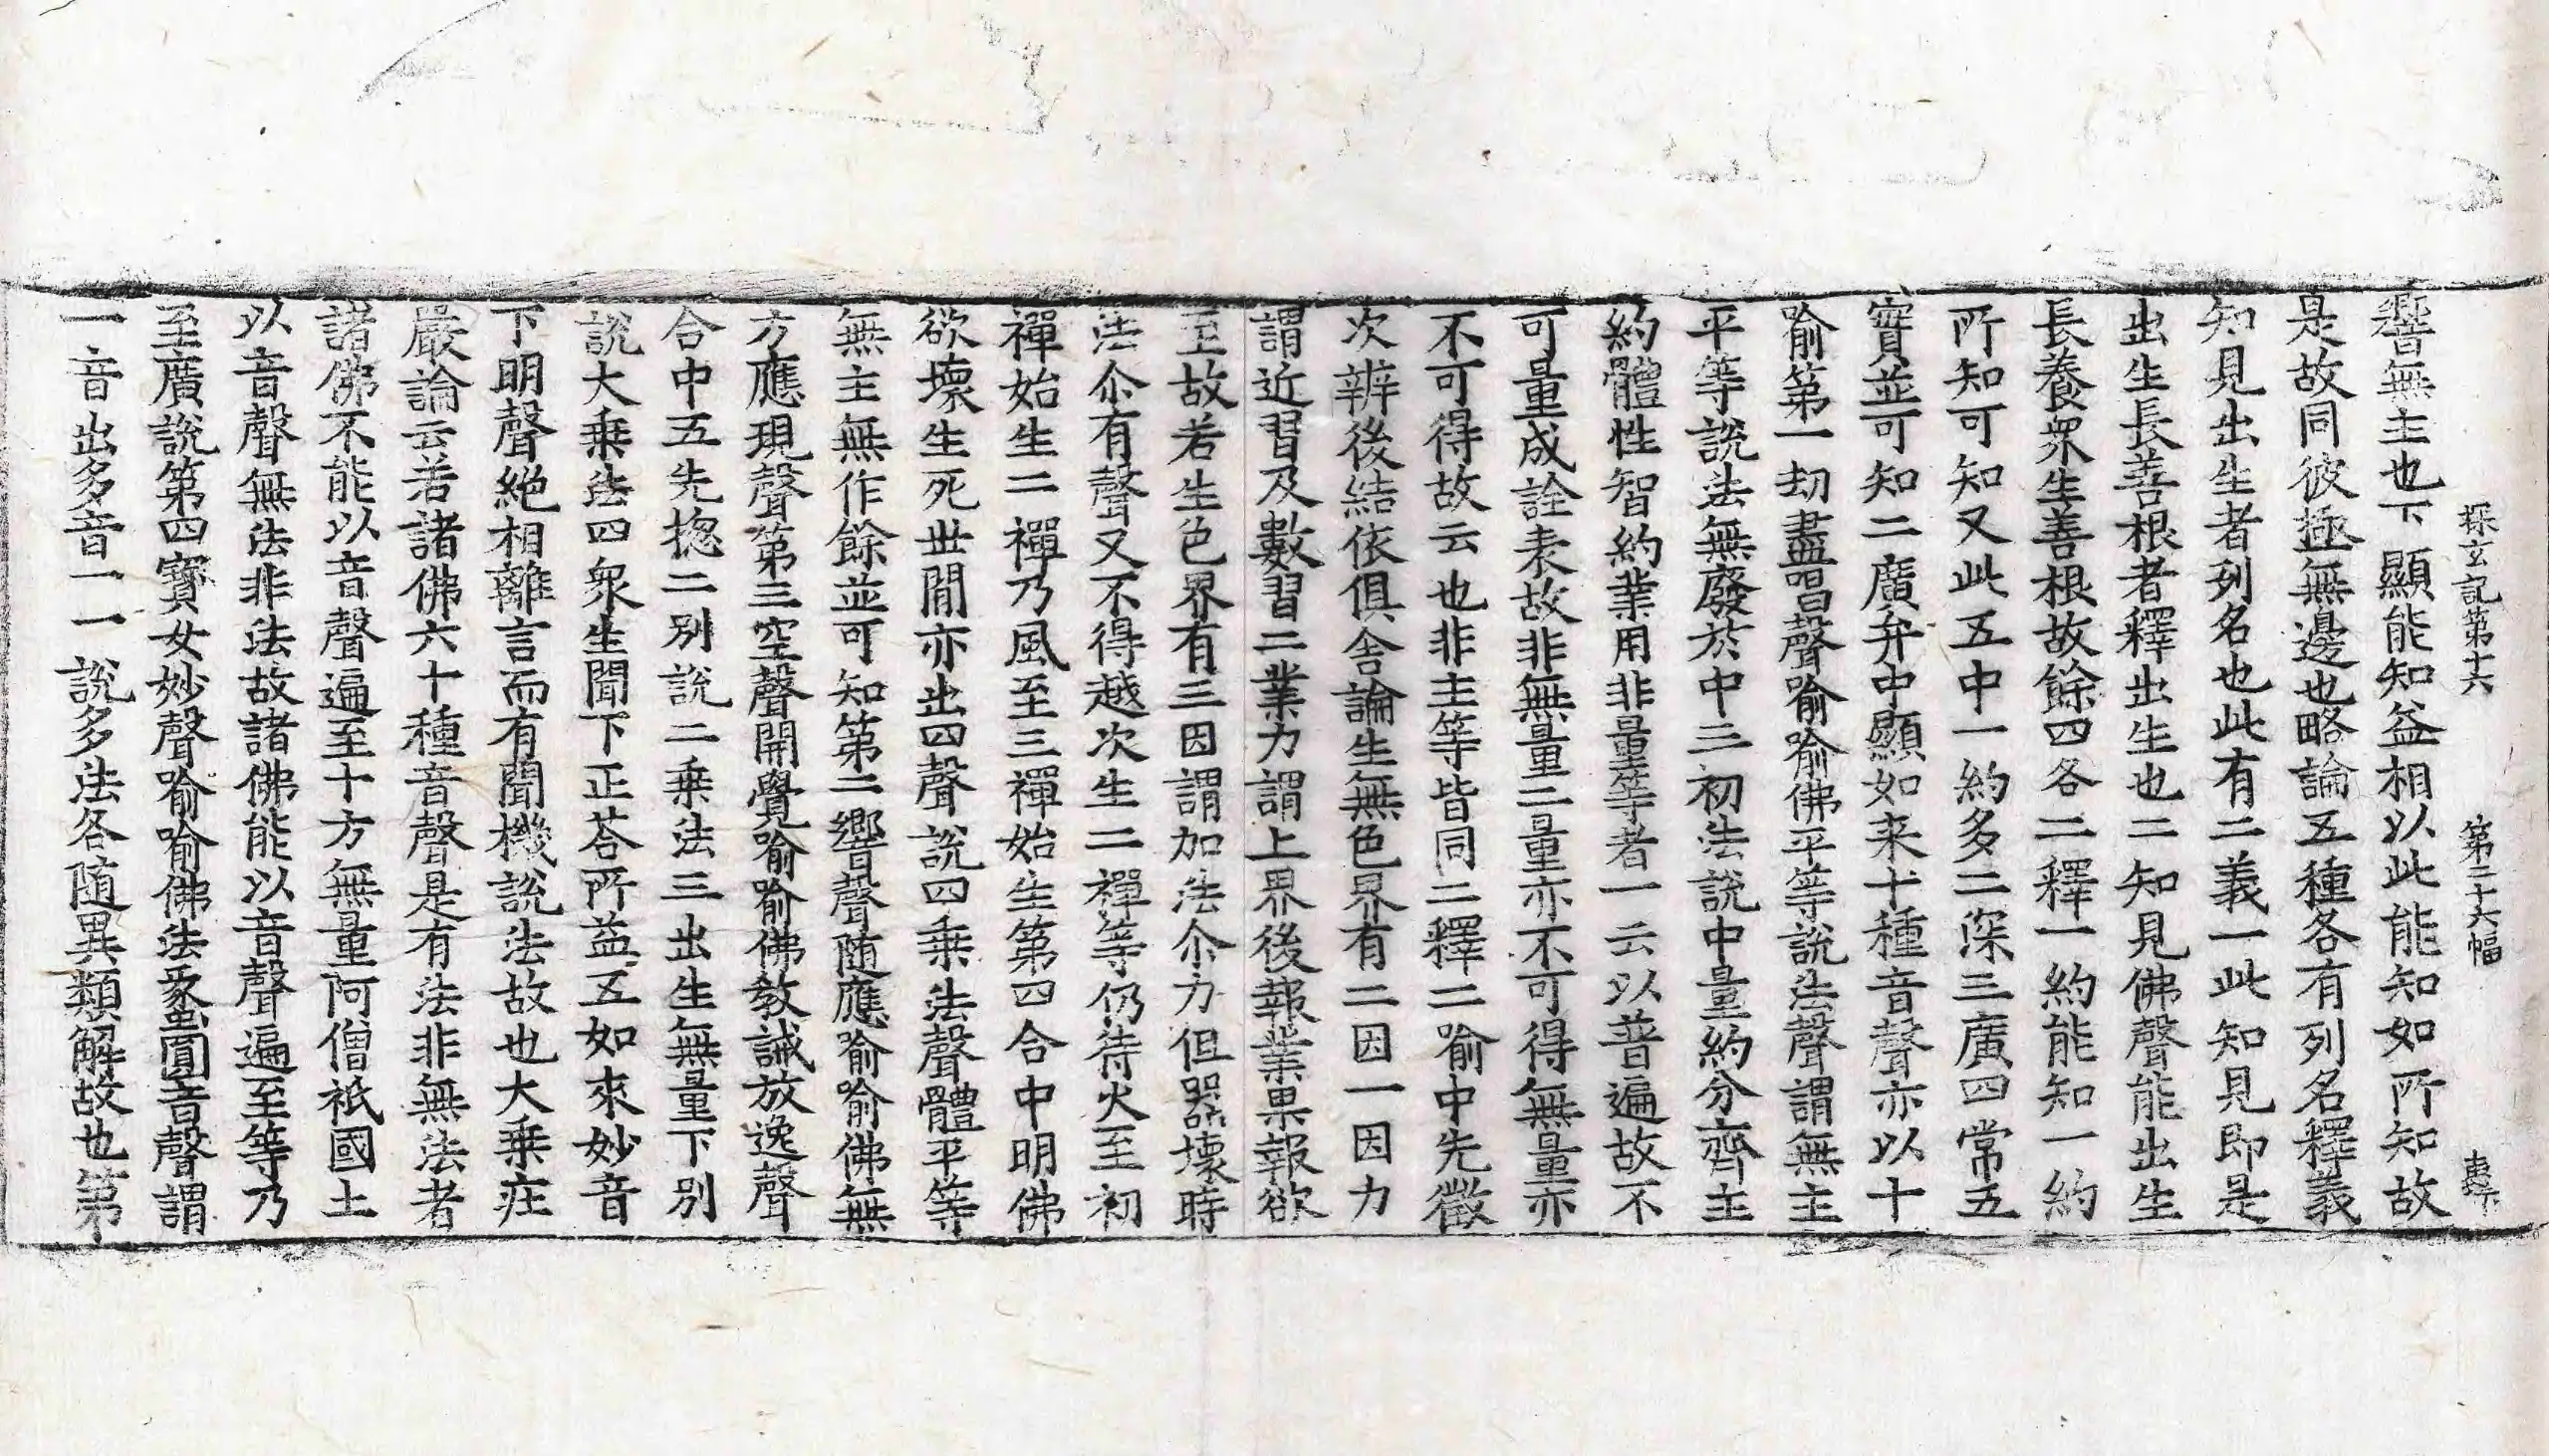 探玄記第十六　第二十六幅
響無主也下顯能知益相以此能知如所知故
是故同彼極無邊也略論五種各有列名釋義
知見出生者列名也此有二義一此知見即是
出生長善根者釋出生也二知見佛聲能出生
長養衆生善根故餘四各二釋一約能知一約
所知可知又此五中一約多二深三廣四常五
實並可知二廣弁中顯如来十種音聲亦以十
喻第一劫盡唱聲喻喻佛平等說法聲謂無主
平等說法無廢於中三初法說中量約分齊主
約體性智約業用非量等者一云以普遍故不
可量成詮表故非無量二量亦不可得無量亦
不可得故云也非主等皆同二釋二喻中先徵
次辨後結依俱舍論生無色界有二因一因力
謂近習及數習二業力謂上界後報業果報欲
至故若生色界有三因謂加法尒力但器壞時
法尒有聲又不得越次生二禪等仍待火至初
禪始生二禪乃風至三禪始生第四合中明佛
欲壞生死世間亦出四聲說四乗法聲體平等
無主無作餘並可知第二響聲随應喻喻佛無
方應現聲第三空聲開覺喻喻佛教誡放逸聲
合中五先揔二別說二乗法三出生無量下別
說大乗法四衆生聞下正荅所益五如來妙音
下明聲絶相離言而有聞機說法故也大乗庄
嚴論云若諸佛六十種音聲是有法非無法者
諸佛不能以音聲遍至十方無量阿僧祇國土
以音聲無法非法故諸佛能以音聲遍至等乃
至廣說第四寶女妙聲喻喻佛法螽圓音聲謂
一音出多音一一說多法各随異類解故也第